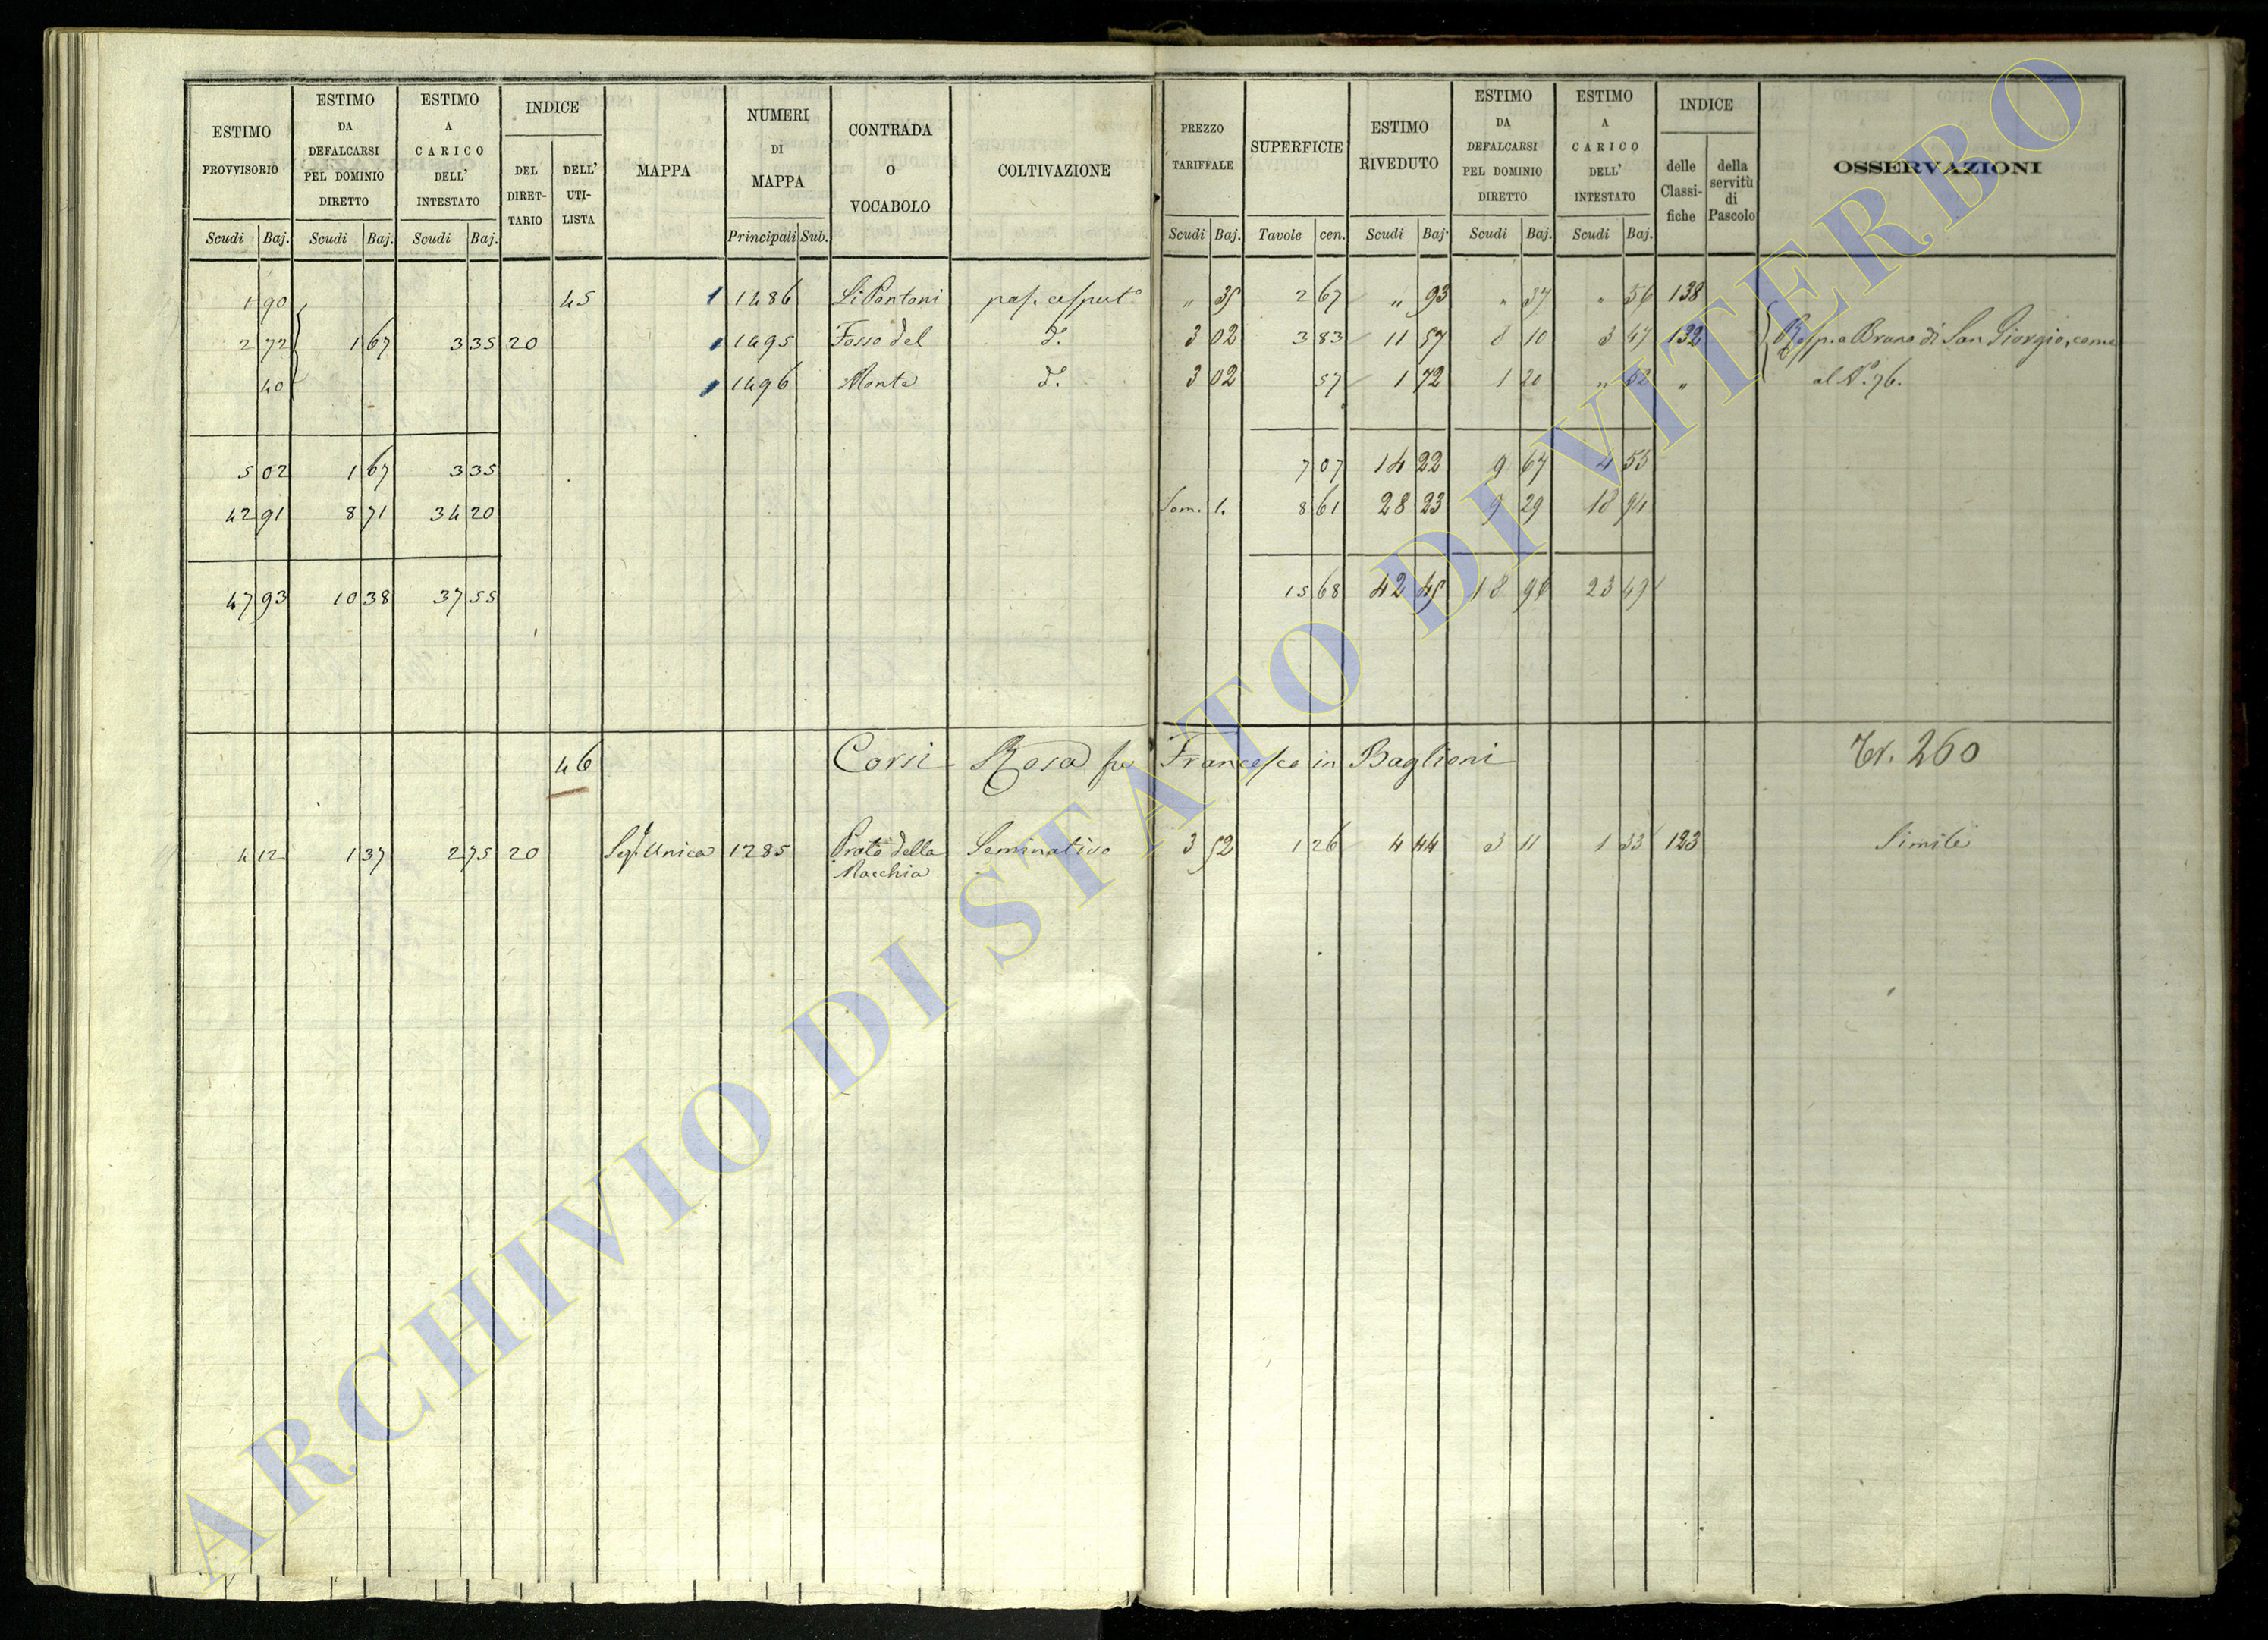 ESTIMO PROVVISORIO | ESTIMO DA DEFALCARSI PEL DOMINIO DIRETTO | ESTIMO A CARICO DELL' INTESTATO | INDICE DEL DIRETTARIO | DELL' UTILISTA | MAPPA | NUMERI DI MAPPA | CONTRADA O VOCABOLO | COLTIVAZIONE | PREZZO TARIFFALE | SUPERFICIE | ESTIMO RIVEDUTO | ESTIMO DA DEFALCARSI PEL DOMINIO DIRETTO | ESTIMO A CARICO DELL' INTESTATO | INDICE delle Classifiche | della servitù di Pascolo | OSSERVAZIONI
Scudi Baj. | Scudi Baj. | Scudi Baj. | Principali Sub. | Scudi Baj. | Tavole cen. | Scudi Baj. | Scudi Baj. | Scudi Baj.
1 90 | 45 | 1 1486 | Li Pontoni | pas. cesput.o | " 35 | 2 67 | " 93 | " 37 | " 56 | 138
2 72 | 1 67 | 3 35 | 20 | 1 1495 | Fosso del | d.o | 3 02 | 3 83 | 11 57 | 8 10 | 3 47 | 132 | Resp. a Brano di San Giorgio, come
40 | 1 1496 | Monte | d.o | 3 02 | 57 | 1 72 | 1 20 | " 52 | " | al N.o 76.
5 02 | 1 67 | 3 35 | 7 07 | 14 22 | 9 67 | 4 55
42 91 | 8 71 | 34 20 | Som. 1. | 8 61 | 28 23 | 9 29 | 18 94
47 93 | 10 38 | 37 55 | 15 68 | 42 45 | 18 96 | 23 49
46 | Corsi Rosa fu Francesco in Baglioni | Tr. 260
4 12 | 1 37 | 2 75 | 20 | Sez. Unica | 1285 | Prato della | Seminativo | 3 52 | 1 26 | 4 44 | 3 11 | 1 33 | 123 | Simile
Macchia
ARCHIVIO DI STATO DI VITERBO